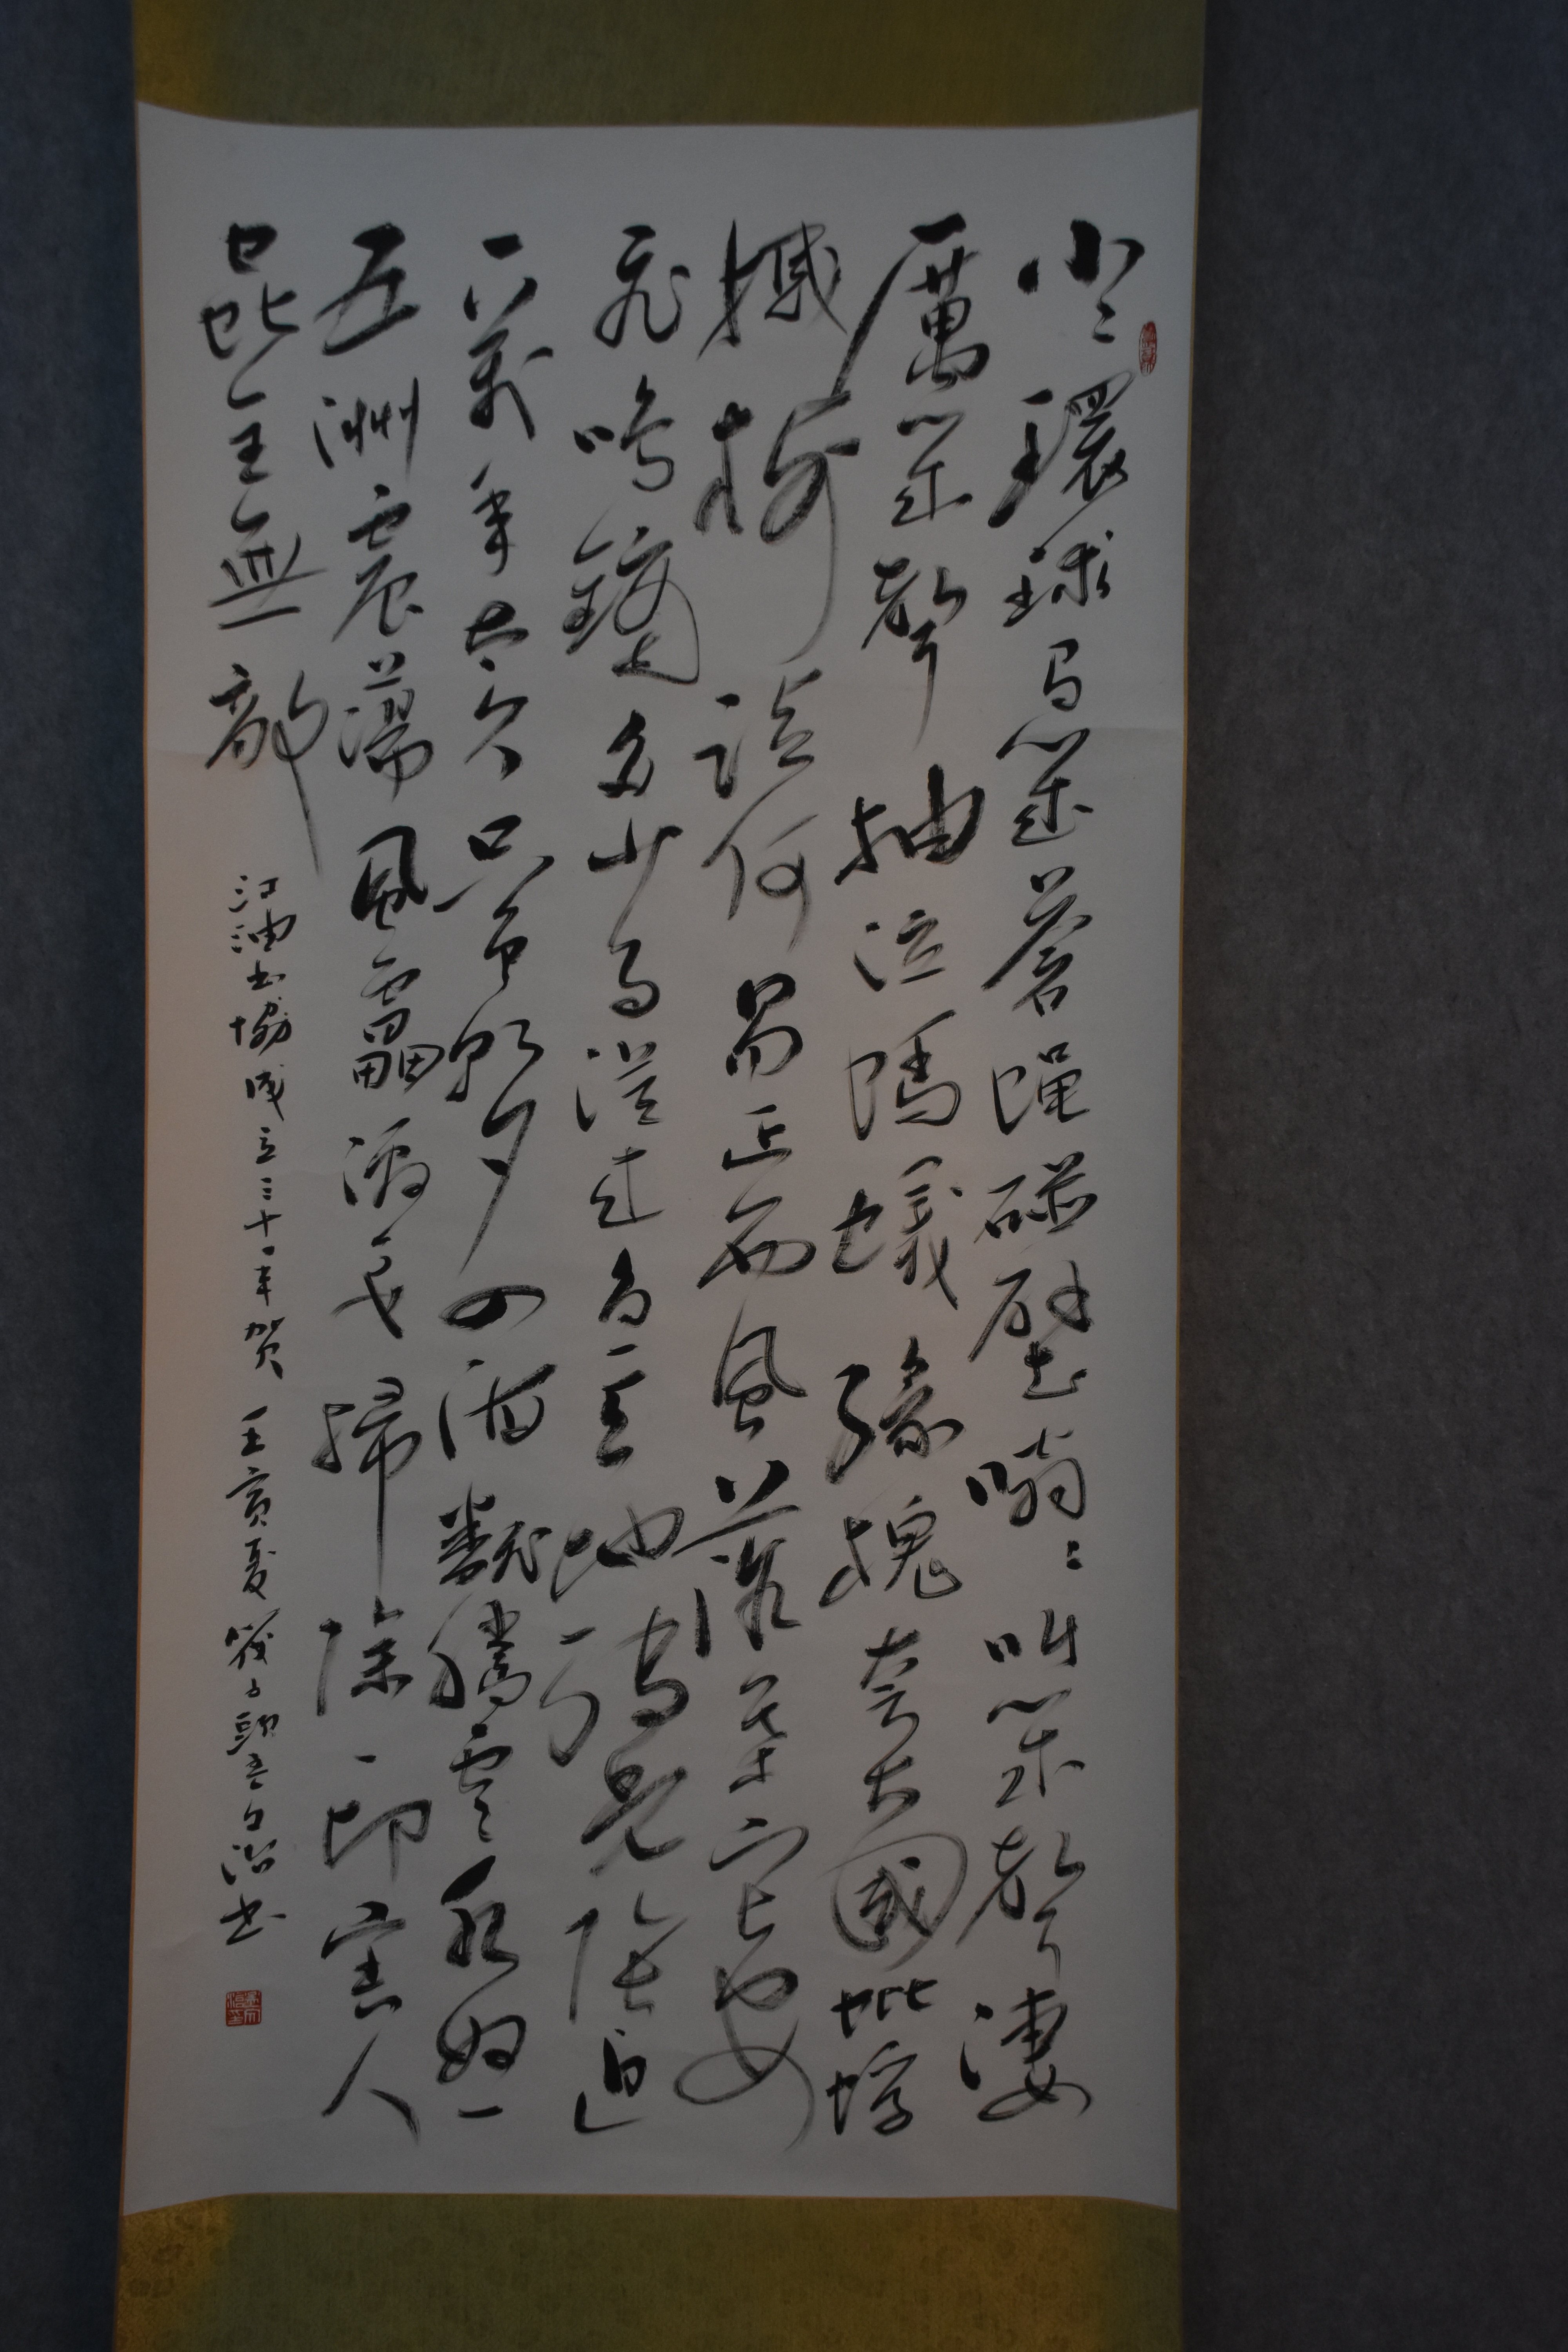 小〻環球有幾蒼蝇碰壁嗡〻叫幾聲凄
厲幾聲抽泣螞蟻緣槐夸大國蚍蜉
撼樹談何易正西風落葉下長安
飛鳴鏑多少事從來急天地轉光陰迫
一萬年太久只争朝夕四海翻騰雲水怒
五洲震蕩風雷激要掃除一切害人
蟲全無敵
江油书協成立三十年賀 壬寅夏 书